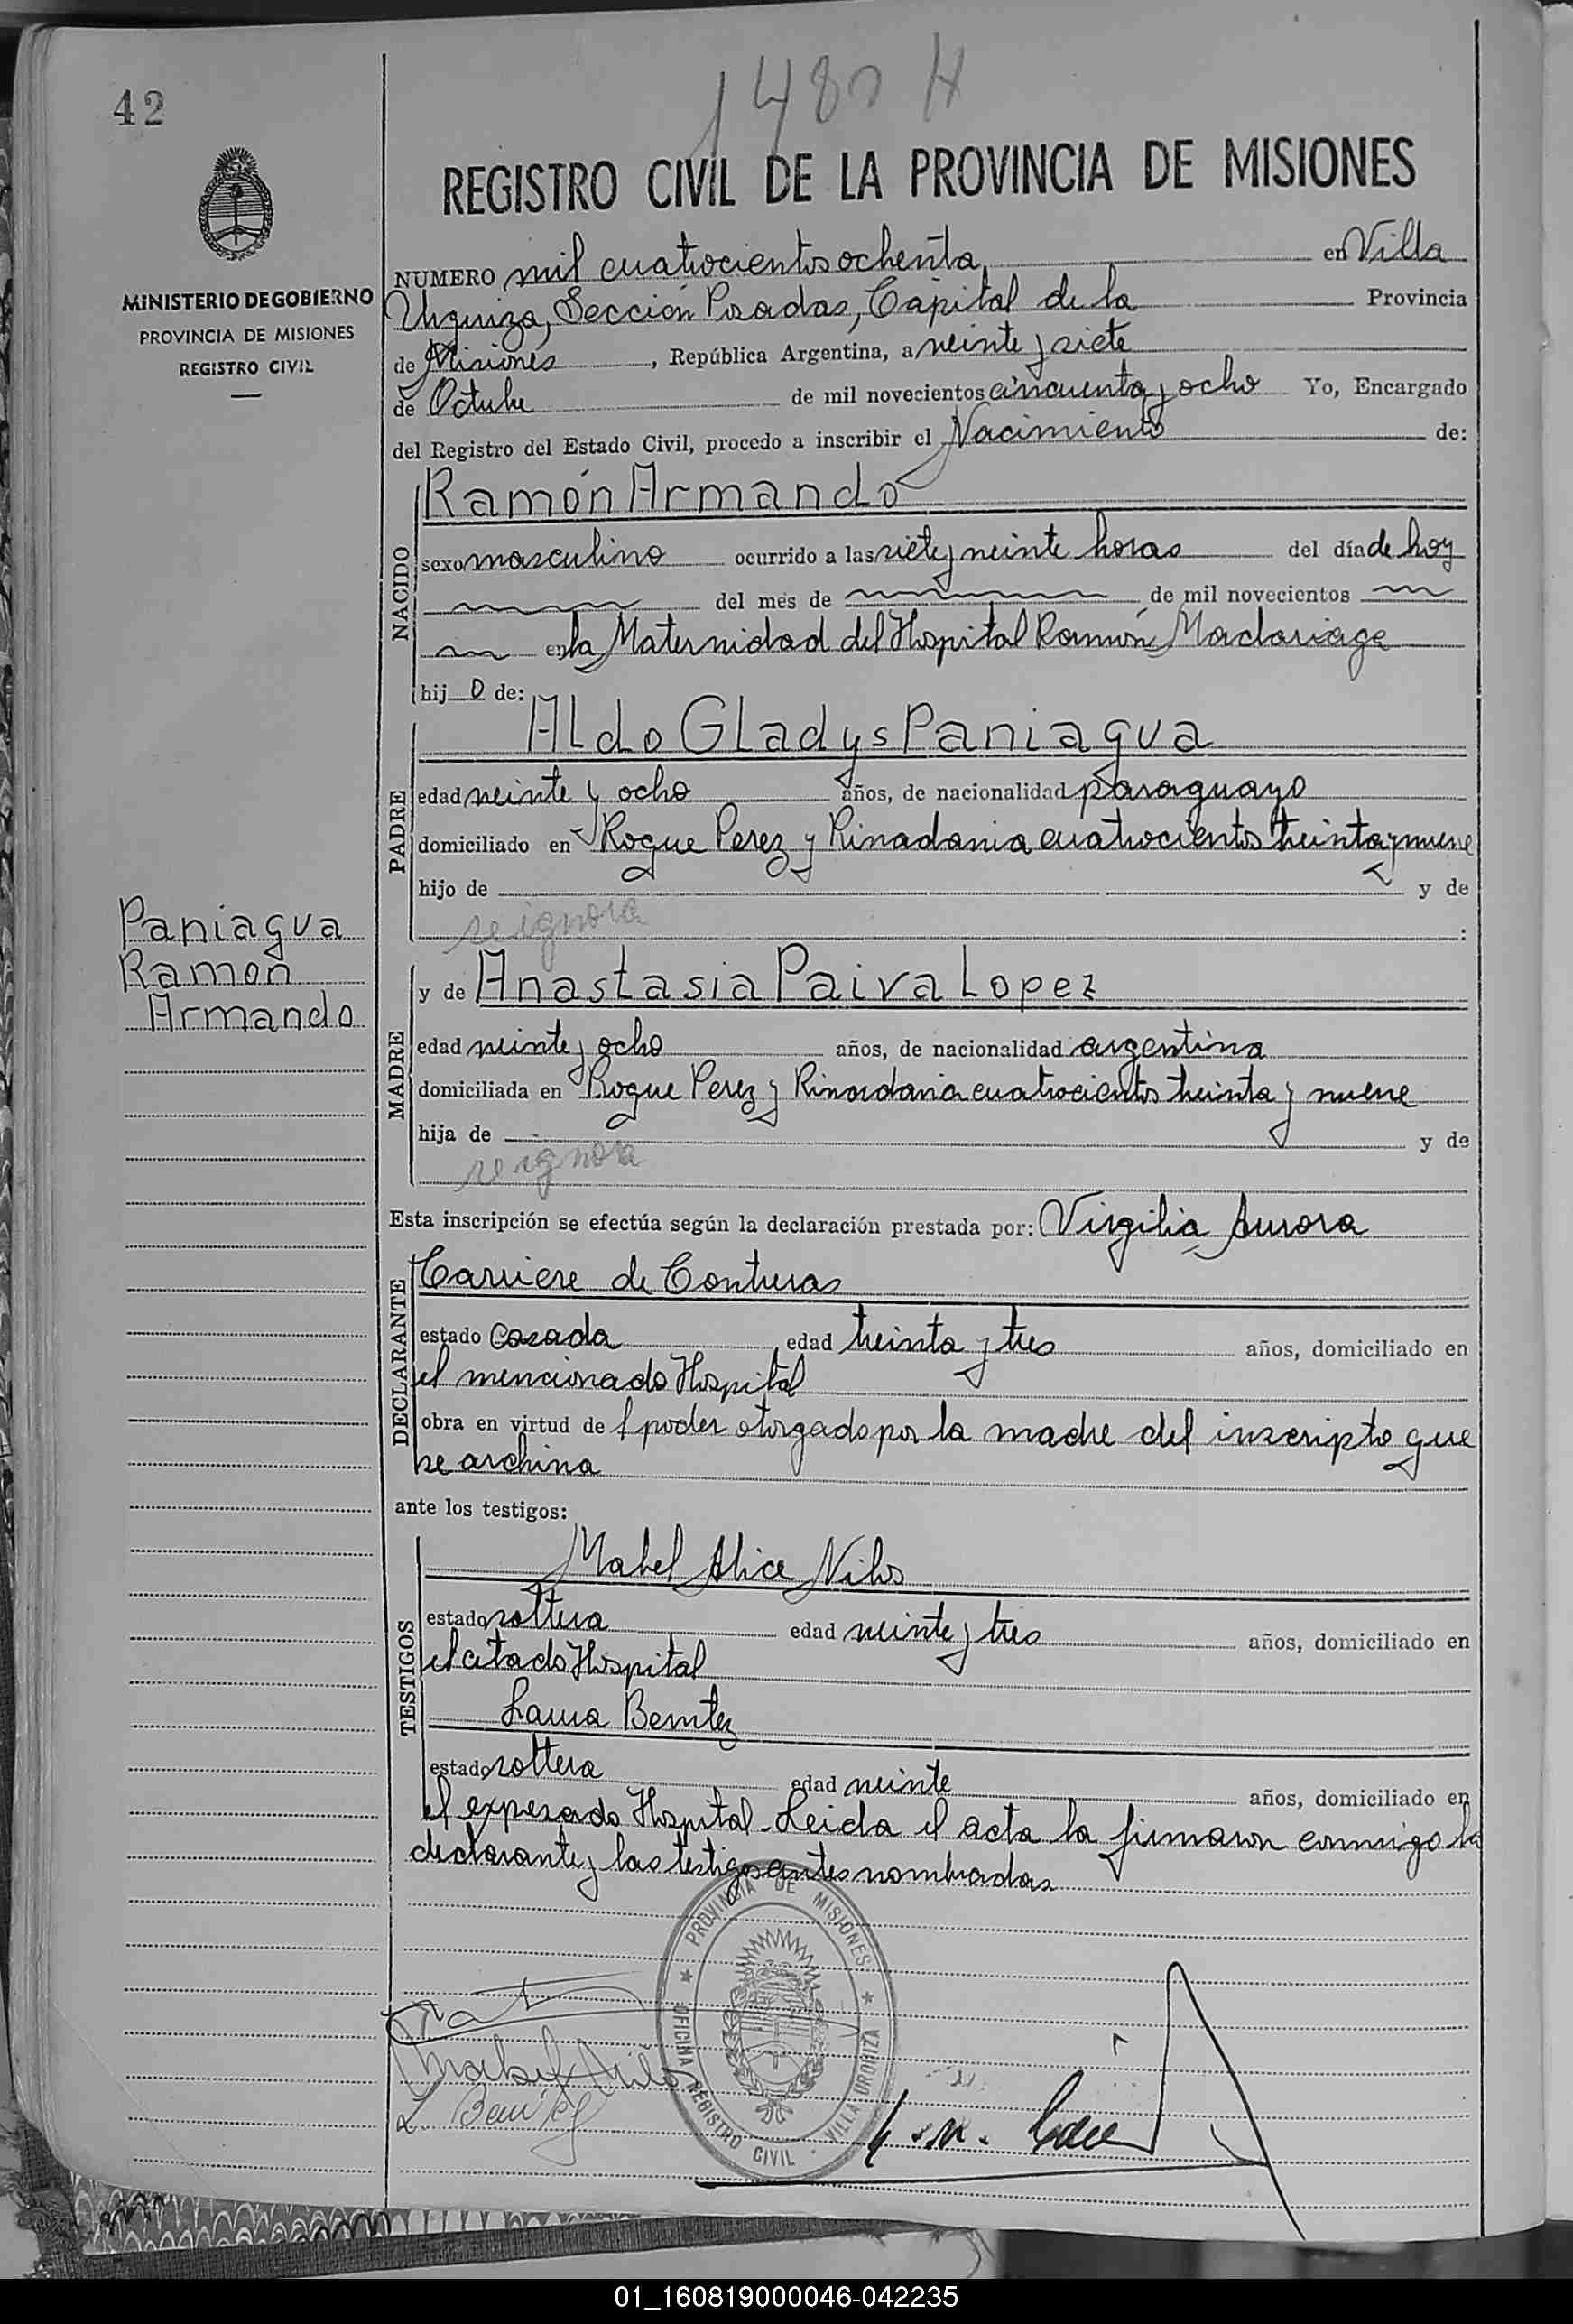 42
1480 H
REGISTRO CIVIL DE LA PROVINCIA DE MISIONES
MINISTERIO DE GOBIERNO
PROVINCIA DE MISIONES
REGISTRO CIVIL
NUMERO mil cuatrocientos ochenta, en Villa
Urquiza, Sección Posadas, Capital de la Provincia
de Misiones, República Argentina, a veinte y siete
de Octubre de mil novecientos cincuenta y ocho Yo, Encargado
del Registro del Estado Civil, procedo a inscribir el Nacimiento de:
NACIDO
Ramón Armando
sexo masculino ocurrido a las siete y veinte horas del día de hoy
del mes de de mil novecientos
en la Maternidad del Hospital Ramón Madariaga
hijo de:
PADRE
Aldo Gladys Paniagua
edad veinte y ocho años, de nacionalidad paraguayo
domiciliado en Roque Perez y Rivadavia cuatrocientos treinta y nueve
hijo de y de
se ignora :
Paniagua
Ramón
Armando
MADRE
y de Anastasia Paiva Lopez
edad veinte y ocho años, de nacionalidad argentina
domiciliada en Roque Perez y Rivadavia cuatrocientos treinta y nueve
hija de y de
se ignora
Esta inscripción se efectúa según la declaración prestada por: Virgilia Aurora
DECLARANTE
Carriere de Contreras
estado casada edad treinta y tres años, domiciliado en
el mencionado Hospital
obra en virtud de poder otorgado por la madre del inscripto que
se archiva
ante los testigos:
TESTIGOS
Mabel Alice
estado soltera edad veinte y tres años, domiciliado en
el citado Hospital
Laura Benitez
estado soltera edad veinte años, domiciliado en
el expresado Hospital. Leida el acta la firmaron conmigo la
declarante y las testigos antes nombradas
PROVINCIA DE MISIONES
OFICINA REGISTRO CIVIL · VILLA URQUIZA
L. Benitez
01_160819000046-042235